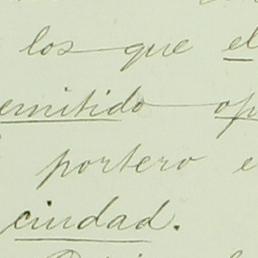 los que el
emitido op
portero e
ciudad.